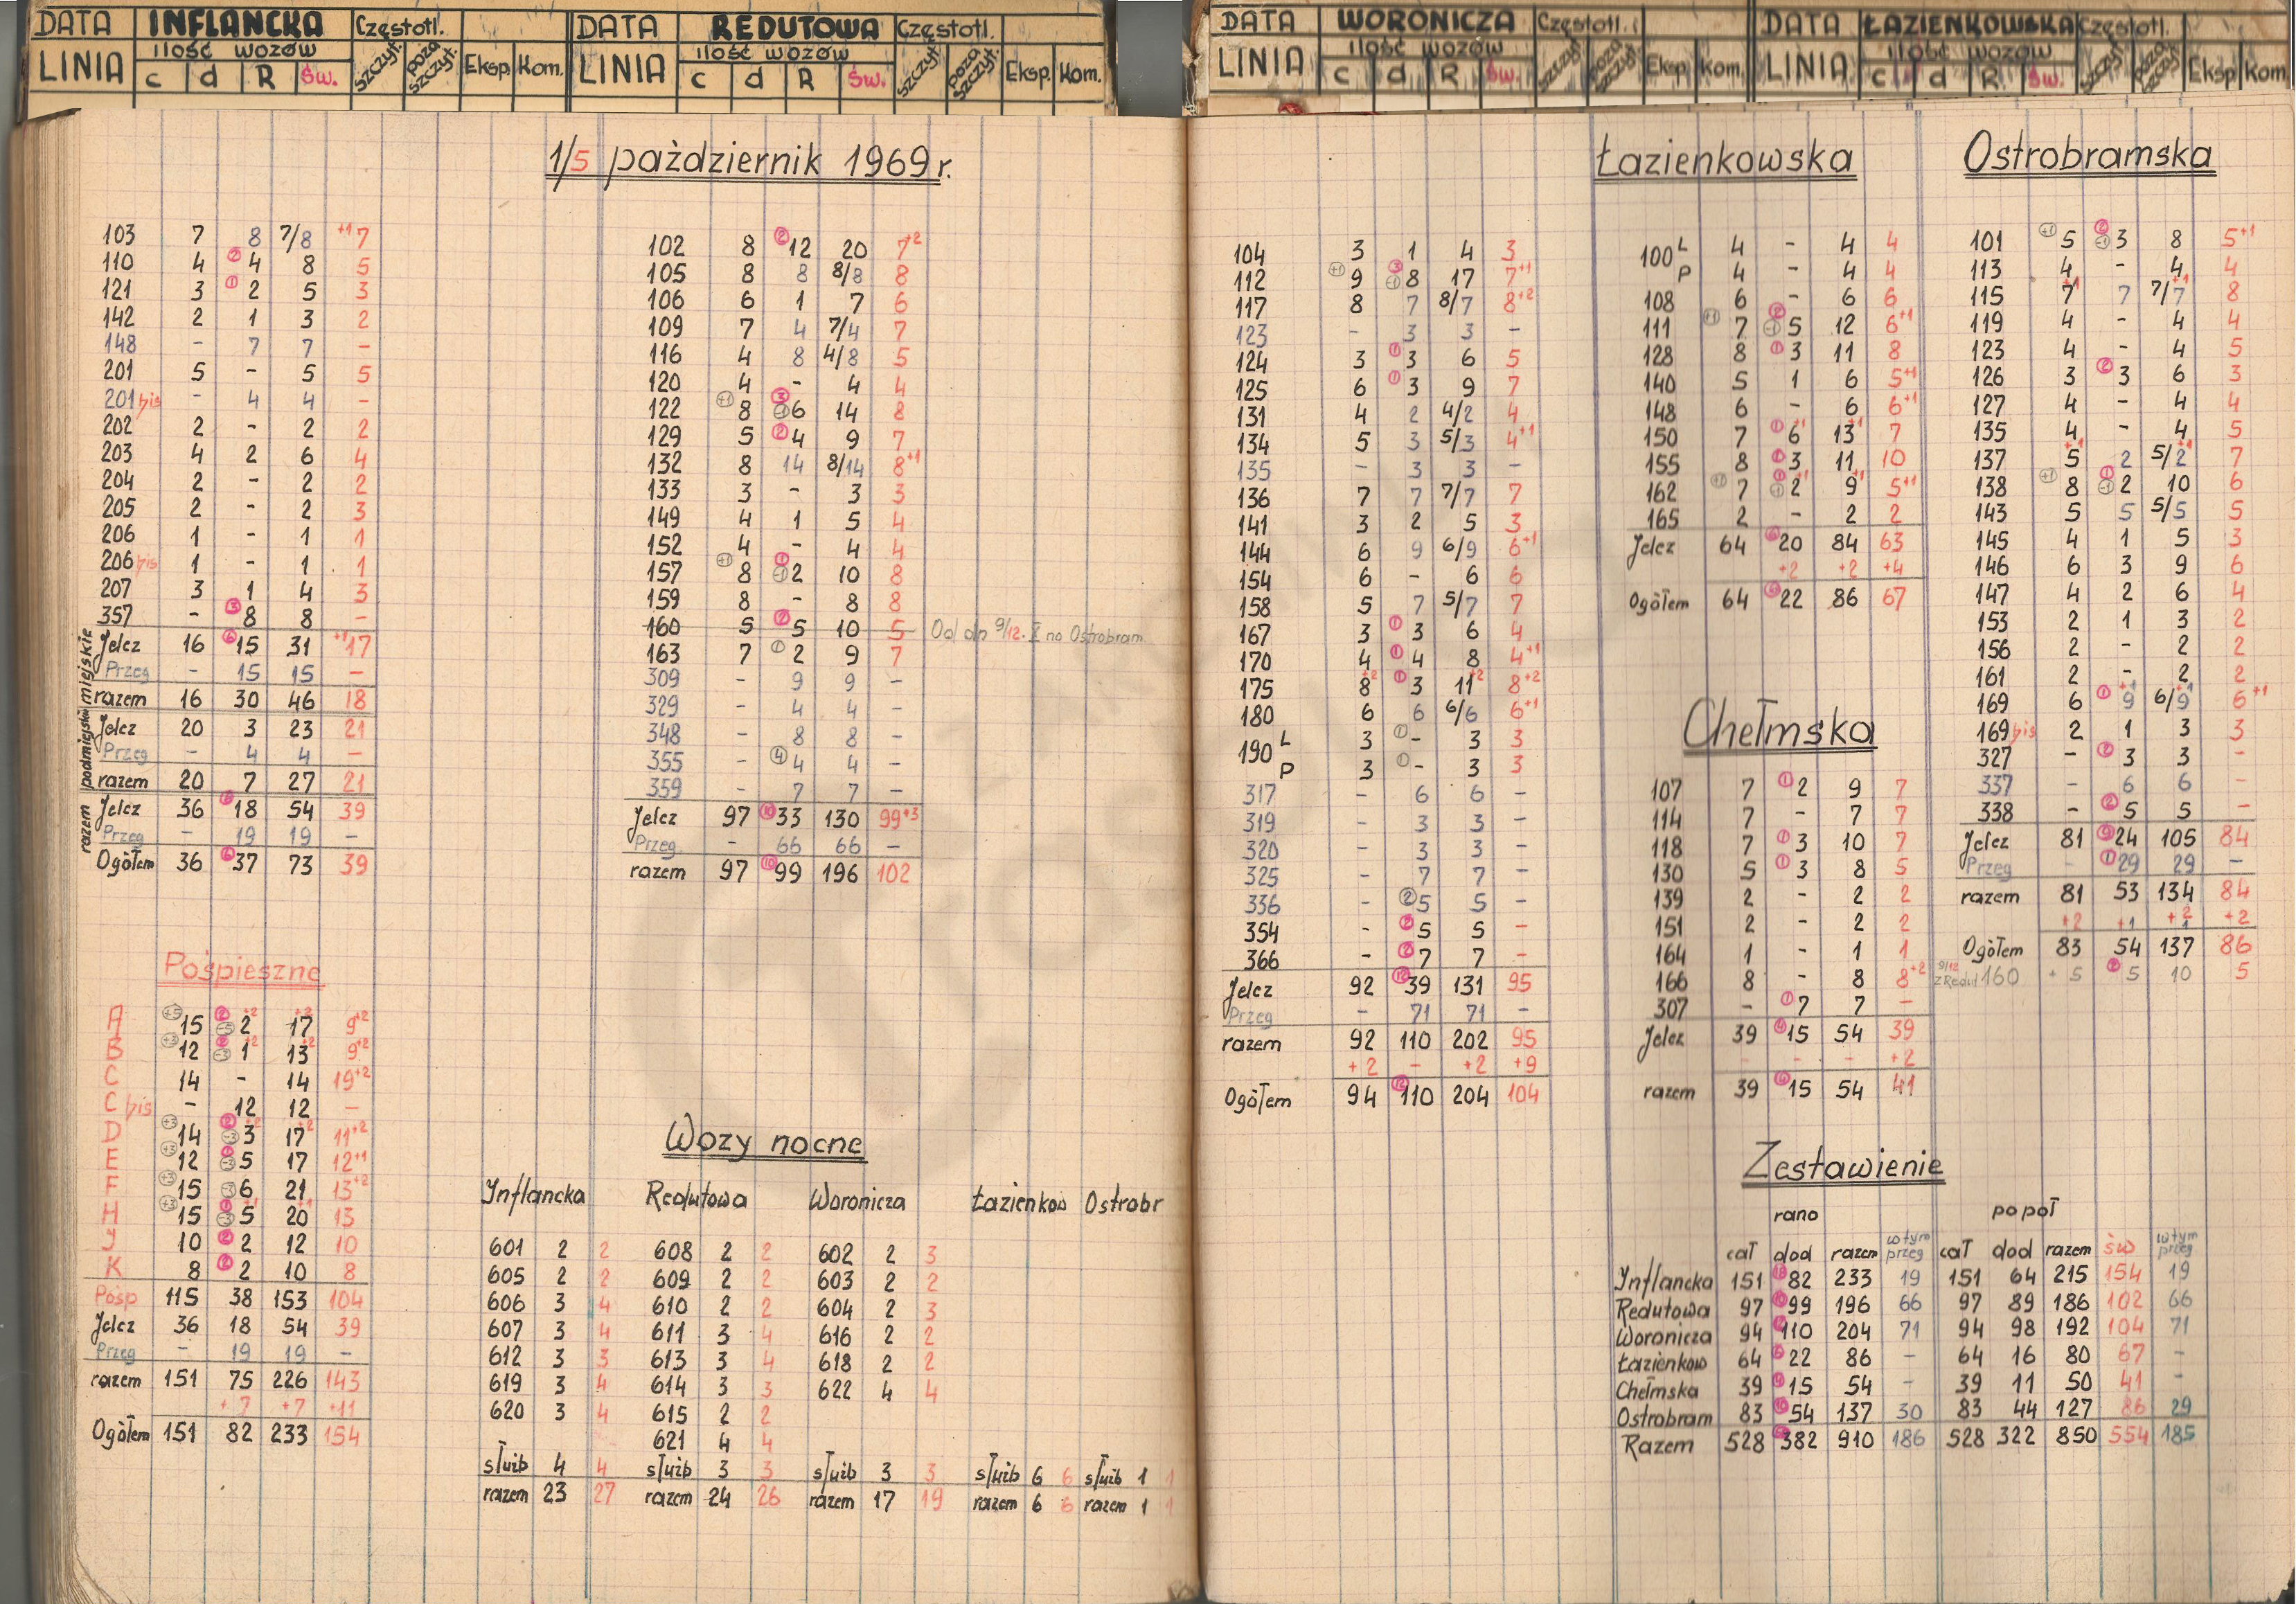 DATA INFLANCKA Częstotl.
LINIA ilość wozów
c d R Św. szczyt. poza szczyt. Eksp. Kom.
DATA REDUTOWA Częstotl.
LINIA ilość wozów
c d R Św. szczyt. poza szczyt. Eksp. Kom.
DATA WORONICZA Częstotl.
LINIA ilość wozów
c d R Św. szczyt. poza szczyt. Eksp. Kom.
DATA ŁAZIENKOWSKA Częstotl.
LINIA ilość wozów
c d R Św. szczyt. poza szczyt. Eksp. Kom.
1/5 październik 1969 r.
103 7 8 7/8 +1 7
110 4 ② 4 8 5
121 3 ① 2 5 3
142 2 1 3 2
148 - 7 7 -
201 5 - 5 5
201 bis - 4 4 -
202 2 - 2 2
203 4 2 6 4
204 2 - 2 2
205 2 - 2 3
206 1 - 1 1
206 bis 1 - 1 1
207 3 1 4 3
357 - ③ 8 8 -
miejskie
Jelcz 16 ⑥ 15 31 +1 17
Przeg - 15 15 -
razem 16 30 46 18
podmiejskie
Jelcz 20 3 23 21
Przeg - 4 4 -
razem 20 7 27 21
razem
Jelcz 36 ⑥ 18 54 39
Przeg - 19 19 -
Ogółem 36 ⑥ 37 73 39
Pośpieszne
A +5 15 ② -5 2 +2 17 +2 9 +2
B +3 12 ② -3 1 +2 13 +2 9 +2
C 14 - 14 19 +2
C bis - 12 12 -
D +3 14 ② -3 3 +2 17 +2 11 +2
E +3 12 ① -3 5 17 12 +1
F +3 15 -3 6 21 13 +2
H +3 15 ① -3 5 +1 20 +1 13
J 10 ② 2 12 10
K 8 ② 2 10 8
Pośp 115 38 153 104
Jelcz 36 18 54 39
Przeg - 19 19 -
razem 151 75 226 143
+7 +7 +11
Ogółem 151 82 233 154
102 8 ② 12 20 7 +2
105 8 8 8/8 8
106 6 1 7 6
109 7 4 7/4 7
116 4 8 4/8 5
120 4 - 4 4
122 +1 8 ③ -1 6 14 8
129 5 ② 4 9 7
132 8 14 8/14 8 +1
133 3 - 3 3
149 4 1 5 4
152 4 - 4 4
157 +1 8 ① -1 2 10 8
159 8 - 8 8
160 5 ② 5 10 5 Od dn 9/12. I na Ostrobram.
163 7 ① 2 9 7
309 - 9 9 -
329 - 4 4 -
348 - 8 8 -
355 - ④ 4 4 -
359 - 7 7 -
Jelcz 97 ⑩ 33 130 99 +3
Przeg - 66 66 -
razem 97 ⑩ 99 196 102
Wozy nocne
Inflancka Redutowa Woronicza Łazienkow Ostrobr
601 2 2 608 2 2 602 2 3
605 2 2 609 2 2 603 2 2
606 3 4 610 2 2 604 2 3
607 3 4 611 3 4 616 2 2
612 3 3 613 3 4 618 2 2
619 3 4 614 3 3 622 4 4
620 3 4 615 2 2
621 4 4
służb 4 4 służb 3 3 służb 3 3 służb 6 6 służb 1 1
razem 23 27 razem 24 26 razem 17 19 razem 6 6 razem 1 1
104 3 1 4 3
112 +1 9 ③ -1 8 17 7 +1
117 8 7 8/7 8 +2
123 - 3 3 -
124 3 ① 3 6 5
125 6 ① 3 9 7
131 4 2 4/2 4
134 5 3 5/3 4 +1
135 - 3 3 -
136 7 7 7/7 7
141 3 2 5 3
144 6 9 6/9 6 +1
154 6 - 6 6
158 5 7 5/7 7
167 3 ① 3 6 4
170 4 ① 4 8 4 +1
175 8 +2 ① 3 11 +2 8 +2
180 6 6 6/6 6 +1
190 L 3 ① - 3 3
P 3 ① - 3 3
317 - 6 6 -
319 - 3 3 -
320 - 3 3 -
325 - 7 7 -
336 - ② 5 5 -
354 - ② 5 5 -
366 - ② 7 7 -
Jelcz 92 ⑫ 39 131 95
Przeg - 71 71 -
razem 92 110 202 95
+2 - +2 +9
Ogółem 94 ⑫ 110 204 104
Łazienkowska
100 L 4 - 4 4
P 4 - 4 4
108 6 - 6 6
111 +1 7 ② -1 5 12 6 +1
128 8 ① 3 11 8
140 5 1 6 5 +1
148 6 - 6 6 +1
150 7 ① 6 +1 13 +1 7
155 8 ① 3 11 10
162 +1 7 ① -1 2 +1 9 +1 5 +1
165 2 - 2 2
Jelcz 64 ⑥ 20 84 63
+2 +2 +4
Ogółem 64 ⑥ 22 86 67
Chełmska
107 7 ① 2 9 7
114 7 - 7 7
118 7 ① 3 10 7
130 5 ① 3 8 5
139 2 - 2 2
151 2 - 2 2
164 1 - 1 1
166 8 - 8 8 +2
307 - ① 7 7 -
Jelcz 39 ④ 15 54 39
- - - +2
razem 39 ④ 15 54 41
Ostrobramska
101 +1 5 ② -1 3 8 5 +1
113 4 - 4 4
115 7 +1 7 7/7 +1 8
119 4 - 4 4
123 4 - 4 5
126 3 ② 3 6 3
127 4 - 4 4
135 4 - 4 5
137 5 +1 2 5/2 +1 7
138 +1 8 ① -1 2 10 6
143 5 5 5/5 5
145 4 1 5 3
146 6 3 9 6
147 4 2 6 4
153 2 1 3 2
156 2 - 2 2
161 2 - 2 2
169 6 ① 9 +1 6/9 +1 6 +1
169 bis 2 1 3 3
327 - ② 3 3 -
337 - 6 6 -
338 - ② 5 5 -
Jelcz 81 ⑨ 24 105 84
Przeg - ① 29 29 -
razem 81 53 134 84
+2 +1 +2 1 +2
Ogółem 83 54 137 86
9/12 z Redut 160 +5 ② 5 10 5
Zestawienie
rano popoł
cał dod razem w tym przeg cał dod razem św w tym przeg
Inflancka 151 82 233 19 151 64 215 154 19
Redutowa 97 ⑩ 99 196 66 97 89 186 102 66
Woronicza 94 ⑫ 110 204 71 94 98 192 104 71
Łazienkow 64 ⑥ 22 86 - 64 16 80 67 -
Chełmska 39 ④ 15 54 - 39 11 50 41 -
Ostrobram 83 ⑩ 54 137 30 83 44 127 86 29
Razem 528 382 910 186 528 322 850 554 185